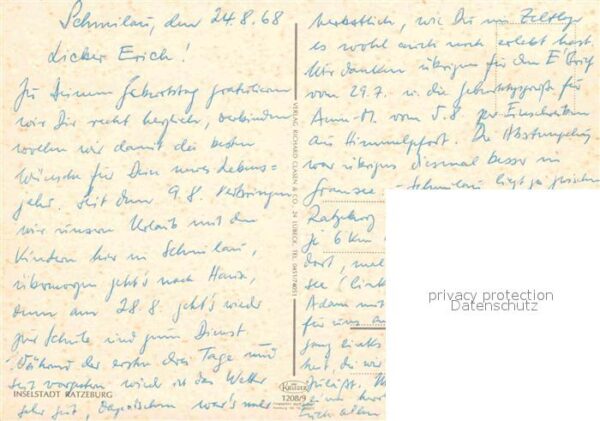 Schmilau, den 24.8.68
Lieber Erich!
Zu Deinem Geburtstag gratulieren
wir Dir recht herzlich, verbinden
wollen wir damit die besten
Wünsche für Dein neues Lebens=
jahr. Seit dem 9.8. verbringen
wir unseren Urlaub mit den
Kindern hier in Schmilau,
übermorgen geht's nach Hause,
denn am 28.8 geht's wieder
zur Schule und zum Dienst
Während der ersten drei Tage und
seit vorgestern wieder ist das Wetter
sehr gut, dazwischen war's mehr
INSELSTADT RATZEBURG
VERLAG RICHARD GLASER & CO., 24 LÜBECK, TEL. 0451/74051
Krüger
1208/9
herbstlich, wie Du im Zeltlager
es wohl auch noch erlebt hast.
Wir danken übrigens für den E'Brief
vom 29.7. u. die Geburtstagsgrüße für
vom 5.8 per Einschreiben
aus Himmelpfort. Die Abstempelung
war übrigens diesmal besser in
Gransee. – Schmilau liegt ja zwischen
Ratzeburg
je 6 km
dort, mal
see (links
Adam mit
für uns
gang links
hat, die wir
privacy protection
Datenschutz